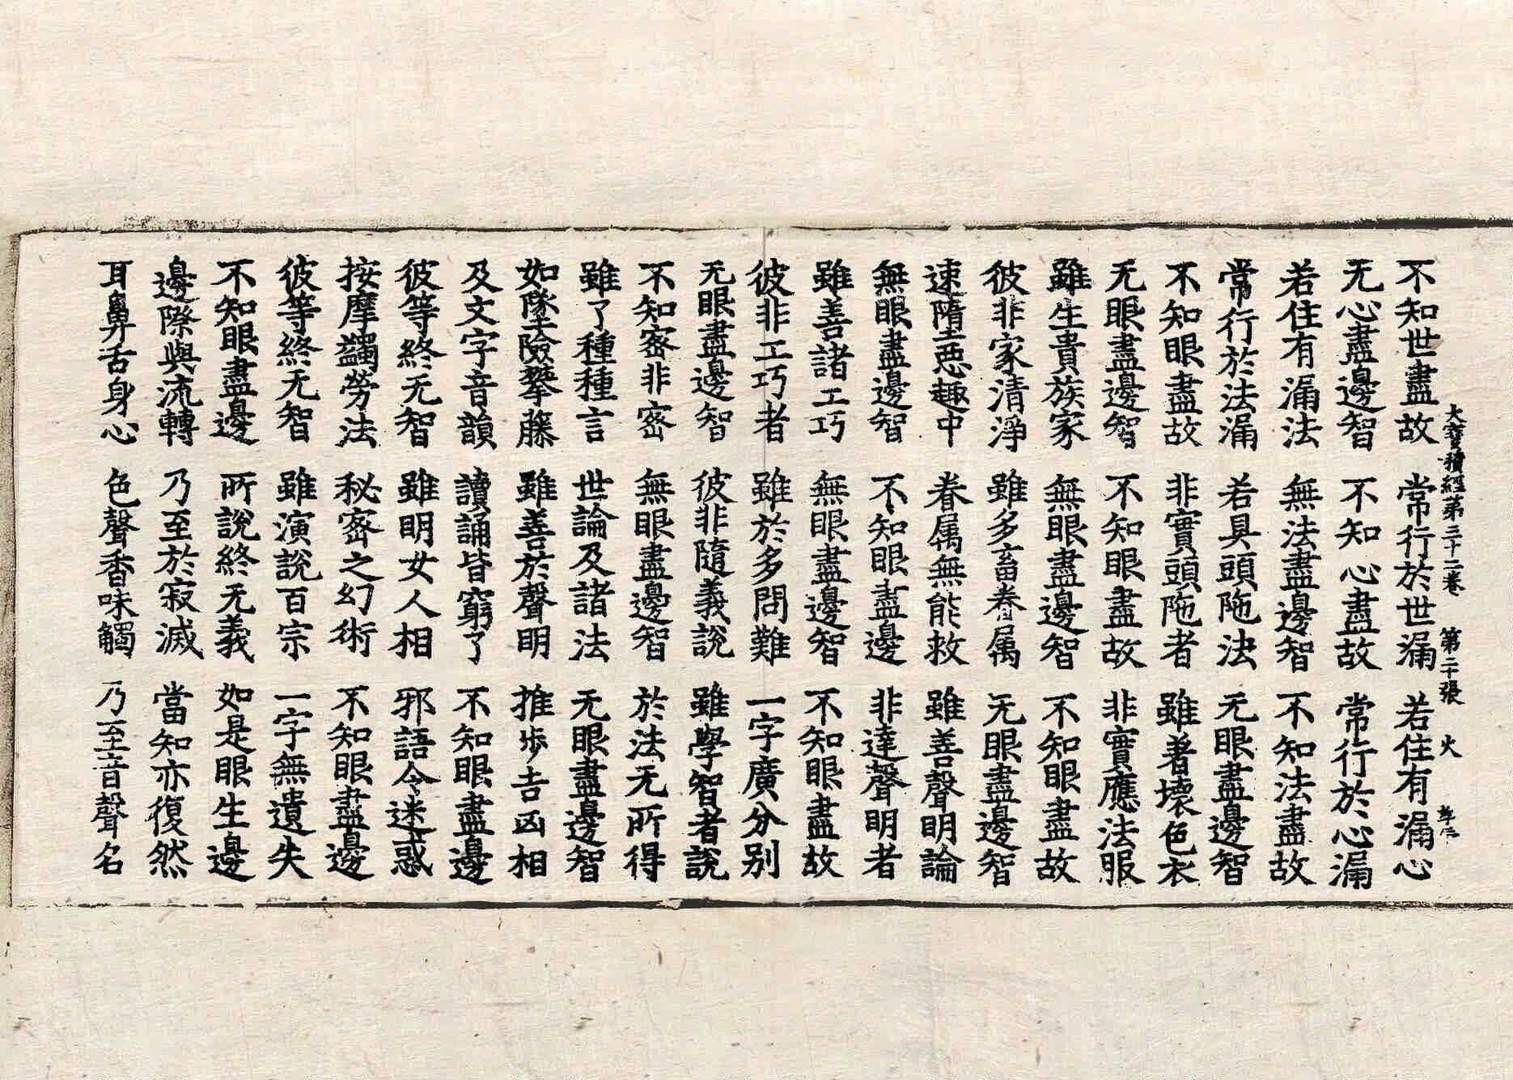 大寶積經第三十二卷 第二十張 火
不知世盡故 常行於世漏 若住有漏心
无心盡邊智 不知心盡故 常行於心漏
若住有漏法 無法盡邊智 不知法盡故
常行於法漏 若具頭陁法 无眼盡邊智
不知眼盡故 非實頭陁者 雖著壞色衣
无眼盡邊智 不知眼盡故 非實應法服
雖生貴族家 無眼盡邊智 不知眼盡故
彼非家清淨 雖多畜眷属 无眼盡邊智
速墮惡趣中 眷属無能救 雖善聲明論
無眼盡邊智 不知眼盡邊 非達聲明者
雖善諸工巧 無眼盡邊智 不知眼盡故
彼非工巧者 雖於多問難 一字廣分别
无眼盡邊智 彼非隨義說 雖學智者說
不知密非密 無眼盡邊智 於法无所得
雖了種種言 世論及諸法 无眼盡邊智
如墜險攀藤 雖善於聲明 推步吉凶相
及文字音韻 讀誦皆窮了 不知眼盡邊
彼等終无智 雖明女人相 邪語令迷惑
按摩蠲勞法 秘密之幻術 不知眼盡邊
彼等終无智 雖演說百宗 一字無遺失
不知眼盡邊 所說終无義 如是眼生邊
邊際與流轉 乃至於寂滅 當知亦復然
耳鼻舌身心 色聲香味觸 乃至音聲名